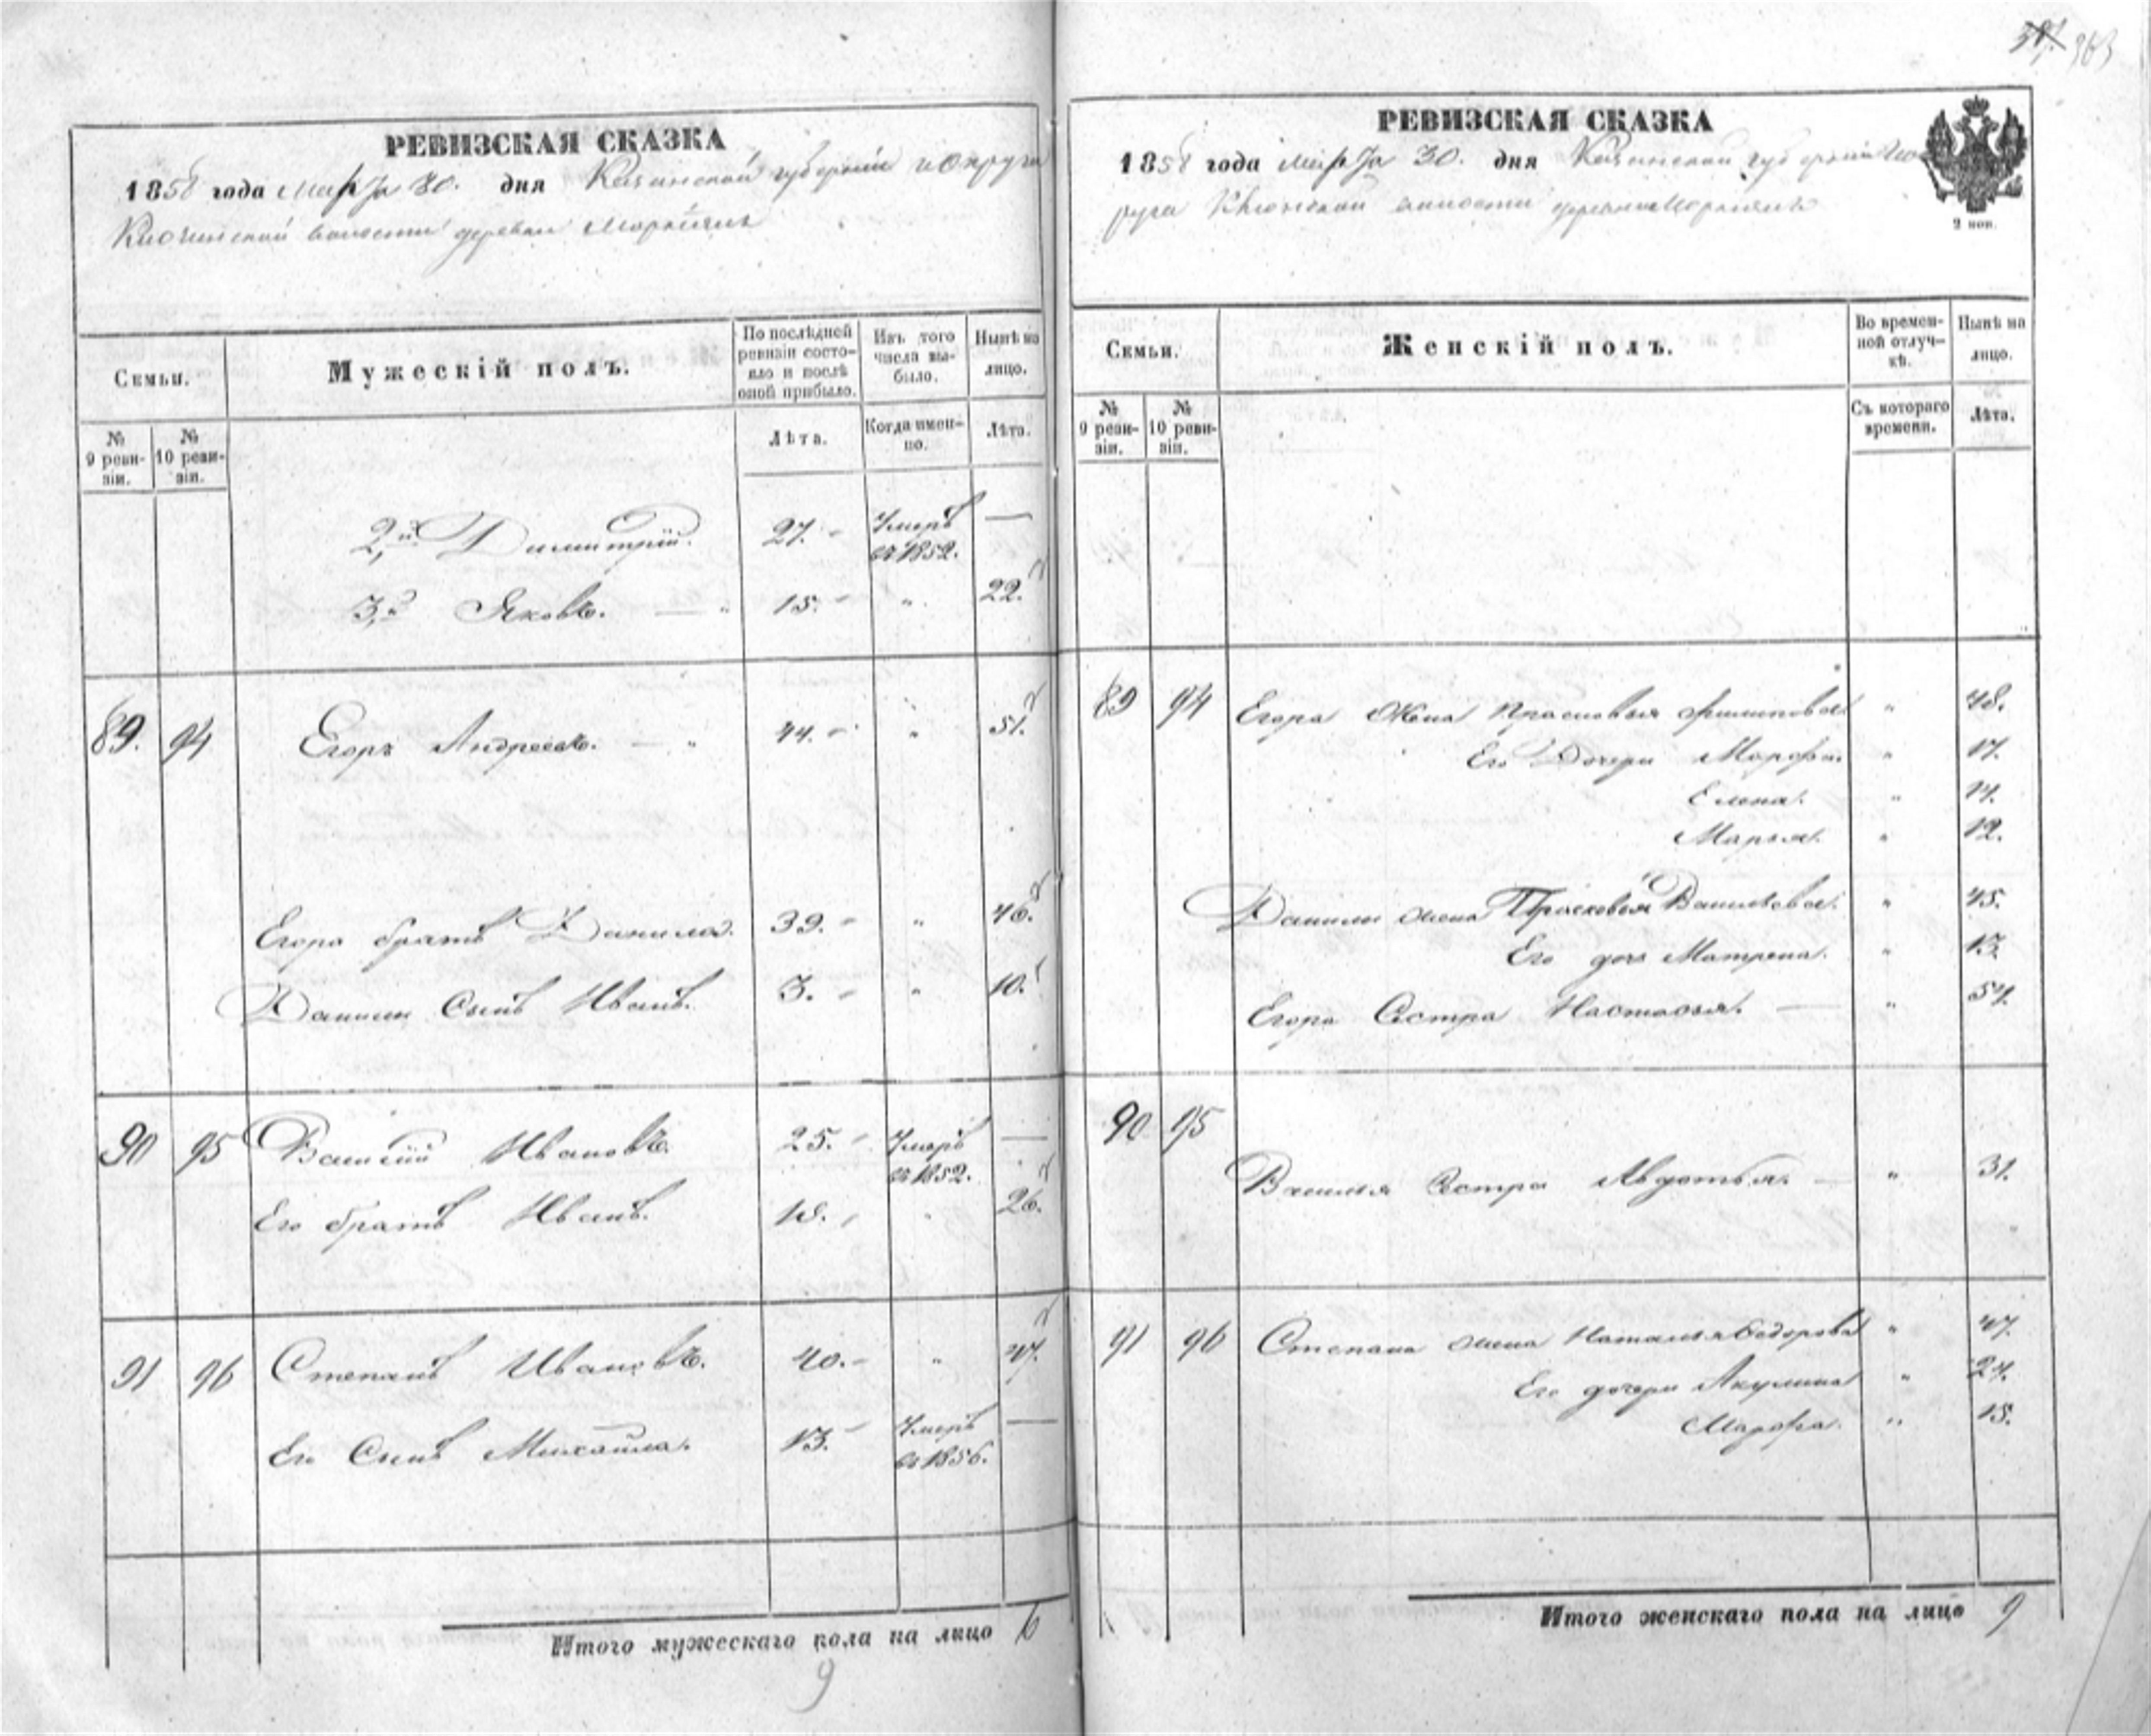 963
РЕВИЗСКАЯ СКАЗКА
1858 года Марта 30. дня Казанской губернии и Округи
волости деревни
Семьи.
Мужескій полъ.
По послѣдней ревизіи состояло и послѣ оной прибыло.
Изъ того числа выбыло.
Нынѣ на лицо.
№ 9 ревизіи.
№ 10 ревизіи.
Лѣта.
Когда именно.
Лѣта.
2,й Димитрій. 27. Умеръ въ 1852. —
3,й Яковъ. — " 15. " 22.
89. 94 Егоръ Андреевъ. — " 44. " 51.
Егора братъ Данила. 39. " 46.
Данилы Сынъ Иванъ. 3. " 10.
90 95 Василій Ивановъ. 25. Умеръ въ 1852. —
Его братъ Иванъ. " 26.
91 96 Степанъ Ивановъ. 40. " 47.
Его Сынъ Михайла. 13. Умеръ въ 1856. —
Итого мужескаго пола на лицо 6
9
РЕВИЗСКАЯ СКАЗКА
1858 года Марта 30. дня Казанской губерніи и Ок-
руга волости деревни
2 коп.
Семьи.
Женскій полъ.
Во временной отлучкѣ.
Нынѣ на лицо.
№ 9 ревизіи.
№ 10 ревизіи.
Съ котораго времени.
Лѣта.
89 94 Егора Жена Прасковья Филипова " 48.
Его Дочери Марфа. " 17.
Елена. " 14.
Марья. " 12.
Данилы жена Прасковья Васильева. " 45.
Его дочь Матрена. " 13.
Егора Сестра Настасья. — "
90 95
Василья Сестра Авдотья. — " 31.
91 96 Степана жена Наталья Федорова " 47.
Его дочери Акулина " 24.
Марфа. " 15.
Итого женскаго пола на лицо 9